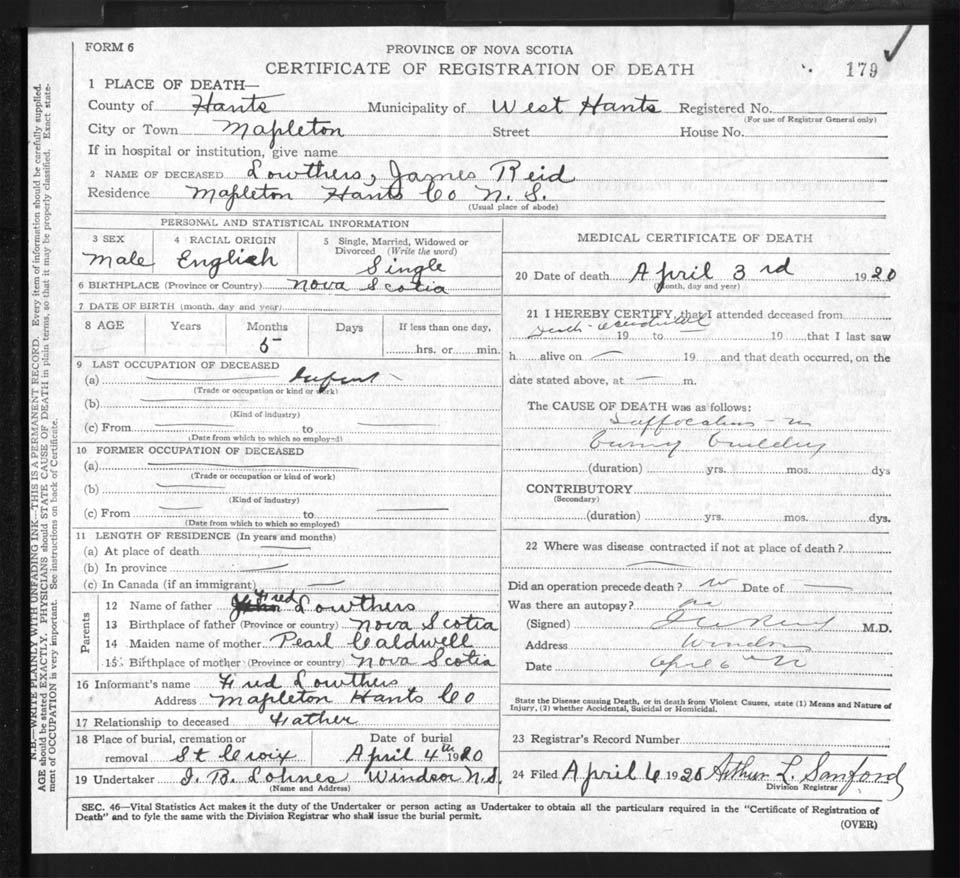 FORM 6
PROVINCE OF NOVA SCOTIA
CERTIFICATE OF REGISTRATION OF DEATH
179
1 PLACE OF DEATH—
County of Hants Municipality of West Hants Registered No.
(For use of Registrar General only)
City or Town Mapleton Street House No.
If in hospital or institution, give name
2 NAME OF DECEASED Lowthers, James Reid
Residence Mapleton Hants Co N. S.
(Usual place of abode)
PERSONAL AND STATISTICAL INFORMATION
3 SEX 4 RACIAL ORIGIN 5 Single, Married, Widowed or Divorced (Write the word)
Male English Single
6 BIRTHPLACE (Province or Country) Nova Scotia
7 DATE OF BIRTH (month, day and year)
8 AGE Years Months Days If less than one day,
5 hrs. or min.
9 LAST OCCUPATION OF DECEASED
(a) Infant
(Trade or occupation or kind of work)
(b)
(Kind of industry)
(c) From to
(Date from which to which so employed)
10 FORMER OCCUPATION OF DECEASED
(a)
(Trade or occupation or kind of work)
(b)
(Kind of industry)
(c) From to
(Date from which to which so employed)
11 LENGTH OF RESIDENCE (In years and months)
(a) At place of death
(b) In province
(c) In Canada (if an immigrant)
Parents
12 Name of father Fred Lowthers
13 Birthplace of father (Province or country) Nova Scotia
14 Maiden name of mother Pearl Caldwell
15 Birthplace of mother (Province or country) Nova Scotia
16 Informant's name Fred Lowthers
Address Mapleton Hants Co
17 Relationship to deceased Father
18 Place of burial, cremation or removal St Croix Date of burial April 4th 1920
19 Undertaker J. B. Lohnes Windsor N.S.
(Name and Address)
MEDICAL CERTIFICATE OF DEATH
20 Date of death April 3rd 1920
(Month, day and year)
21 I HEREBY CERTIFY, that I attended deceased from
Death accidental 19 to 19 that I last saw
h alive on 19 and that death occurred, on the
date stated above, at m.
The CAUSE OF DEATH was as follows:
Suffocation in
burning building
(duration) yrs. mos. dys
CONTRIBUTORY
(Secondary)
(duration) yrs. mos. dys.
22 Where was disease contracted if not at place of death?
Did an operation precede death? no Date of
Was there an autopsy? no
(Signed) M.D.
Address Windsor
Date April 6th
State the Disease causing Death, or in death from Violent Causes, state (1) Means and Nature of
Injury, (2) whether Accidental, Suicidal or Homicidal.
23 Registrar's Record Number
24 Filed April 6 1920 Arthur L. Sanford
Division Registrar
SEC. 46—Vital Statistics Act makes it the duty of the Undertaker or person acting as Undertaker to obtain all the particulars required in the "Certificate of Registration of
Death" and to fyle the same with the Division Registrar who shall issue the burial permit.
(OVER)
N.B.—WRITE PLAINLY WITH UNFADING INK—THIS IS A PERMANENT RECORD. Every item of information should be carefully supplied.
AGE should be stated EXACTLY. PHYSICIANS should STATE CAUSE OF DEATH in plain terms, so that it may be properly classified. Exact state-
ment of OCCUPATION is very important. See instructions on back of Certificate.